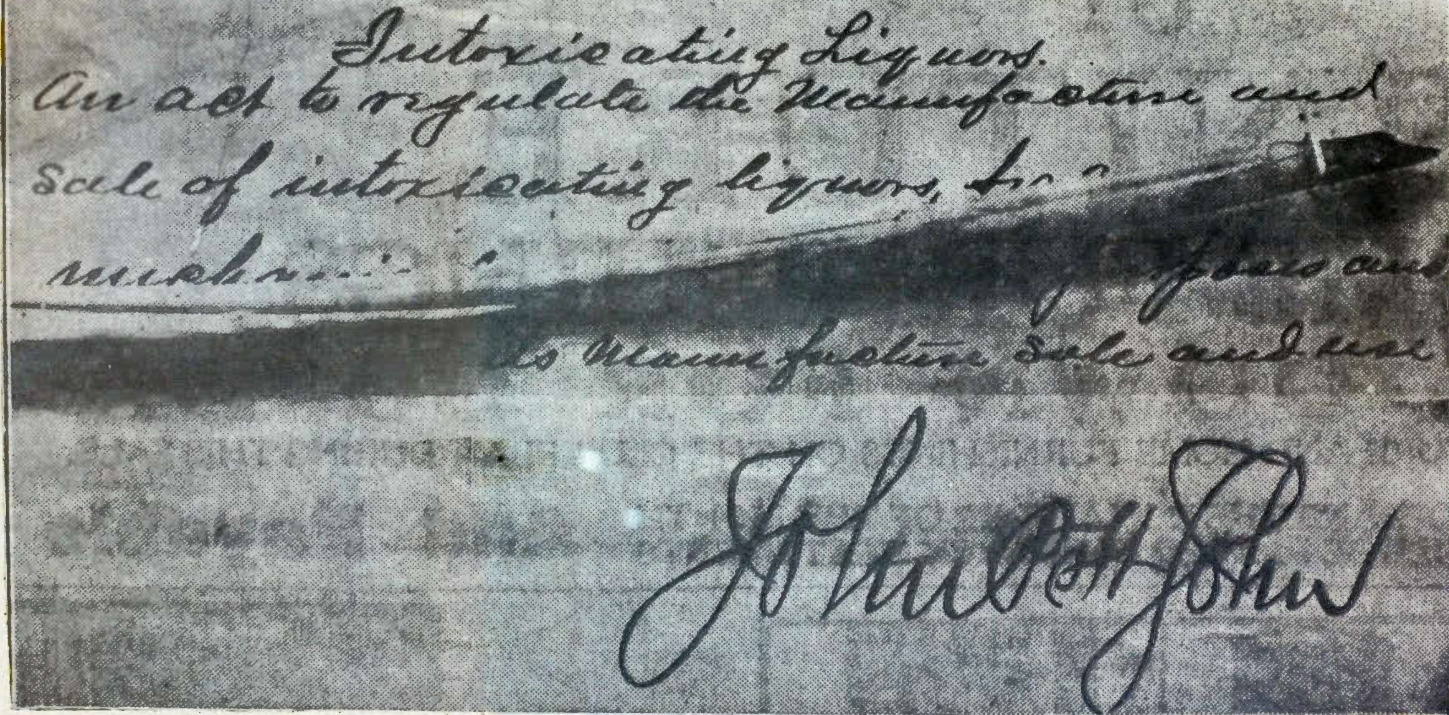 Intoxicating Liquors.
An act to regulate the Manufacture and
sale of intoxicating liquors,
and
Manufacture Sale and use
John P St John